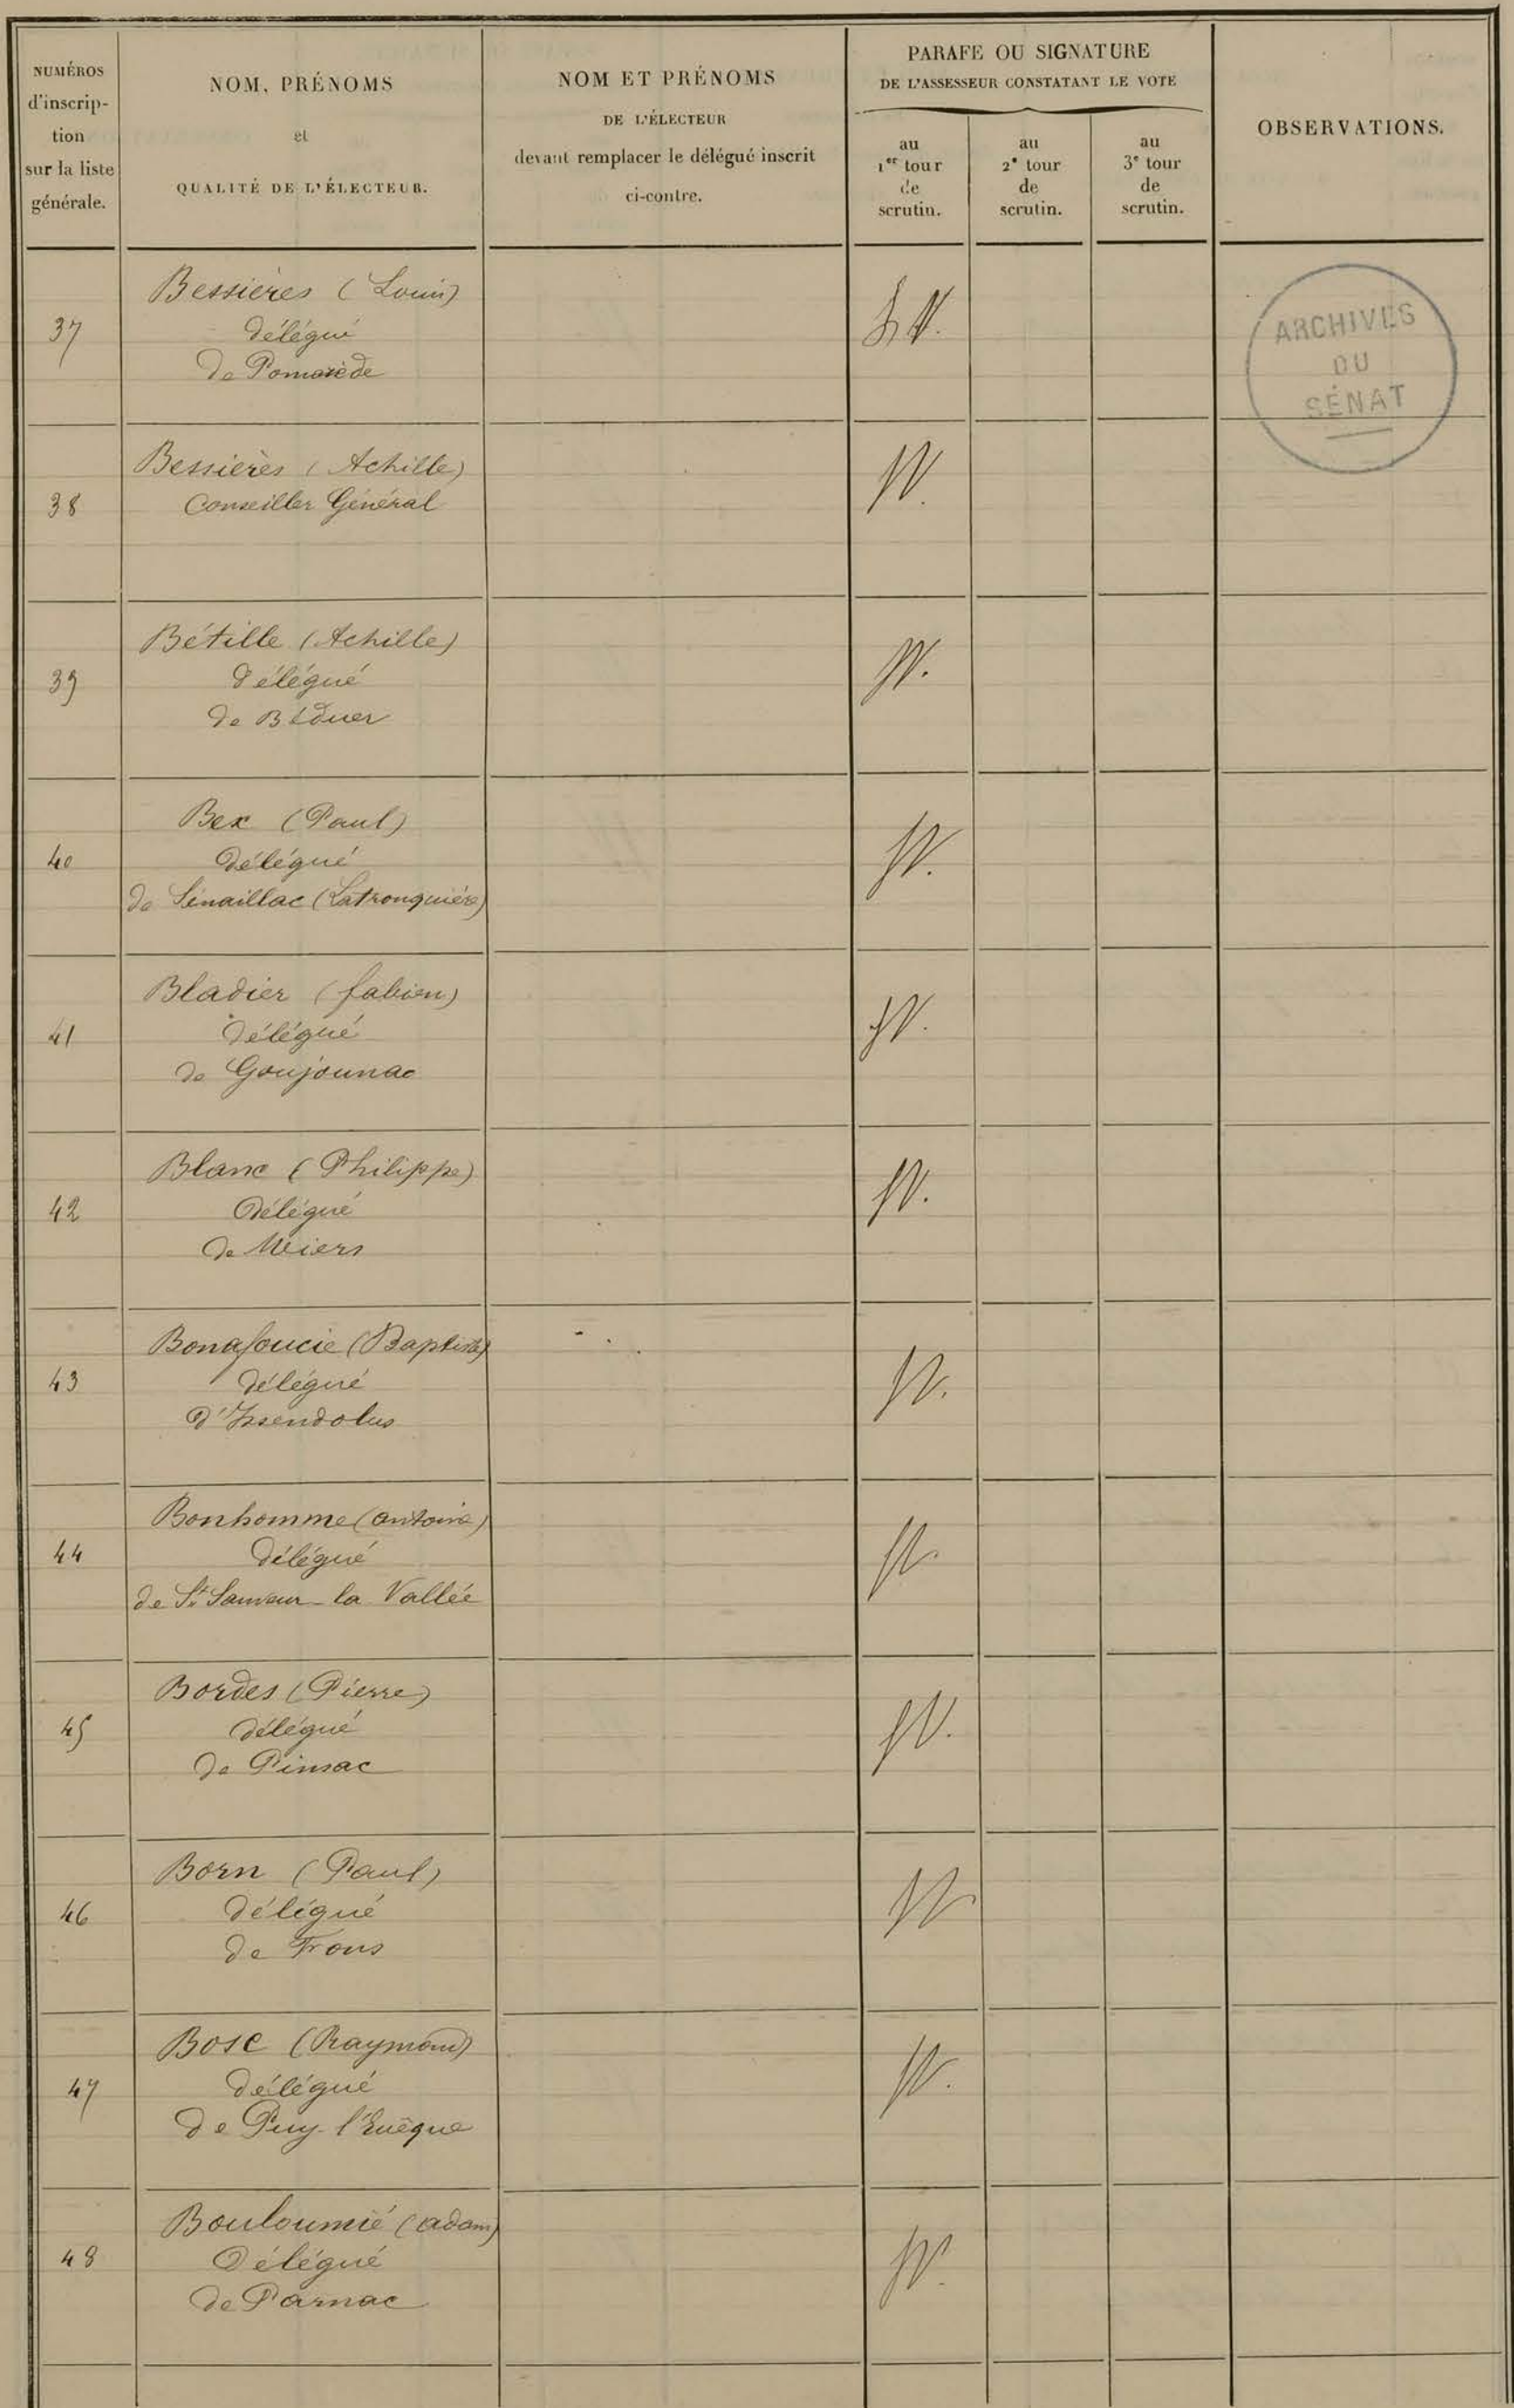 NUMÉROS
d'inscrip-
tion
sur la liste
générale.
NOM, PRÉNOMS
et
QUALITÉ DE L'ÉLECTEUR.
NOM ET PRÉNOMS
DE L'ÉLECTEUR
devant remplacer le délégué inscrit
ci-contre.
PARAFE OU SIGNATURE
DE L'ASSESSEUR CONSTATANT LE VOTE
au
1er tour
de
scrutin.
au
2e tour
de
scrutin.
au
3e tour
de
scrutin.
OBSERVATIONS.
ARCHIVES
DU
SÉNAT
37
Bessières (Louis)
délégué
de Pomarède
38
Bessières (Achille)
Conseiller Général
39
Bétille (Achille)
délégué
de Béduer
40
Bex (Paul)
délégué
de Sénaillac (Latronquière)
41
Bladier (fabien)
délégué
de Goujounac
42
Blanc (Philippe)
délégué
de Miers
43
Bonafoucie (Baptiste)
délégué
d'Issendolus
44
Bonhomme (antoine)
délégué
de St Sauveur-la Vallée
45
Bordes (Pierre)
délégué
de Pinsac
46
Born (Paul)
délégué
de Frons
47
Bosc (Raymond)
délégué
de Puy-l'Evêque
48
Bouloumié (adam)
Délégué
de Parnac